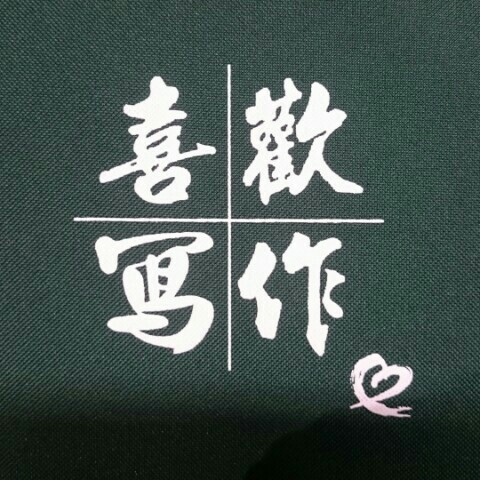 喜歡
寫作